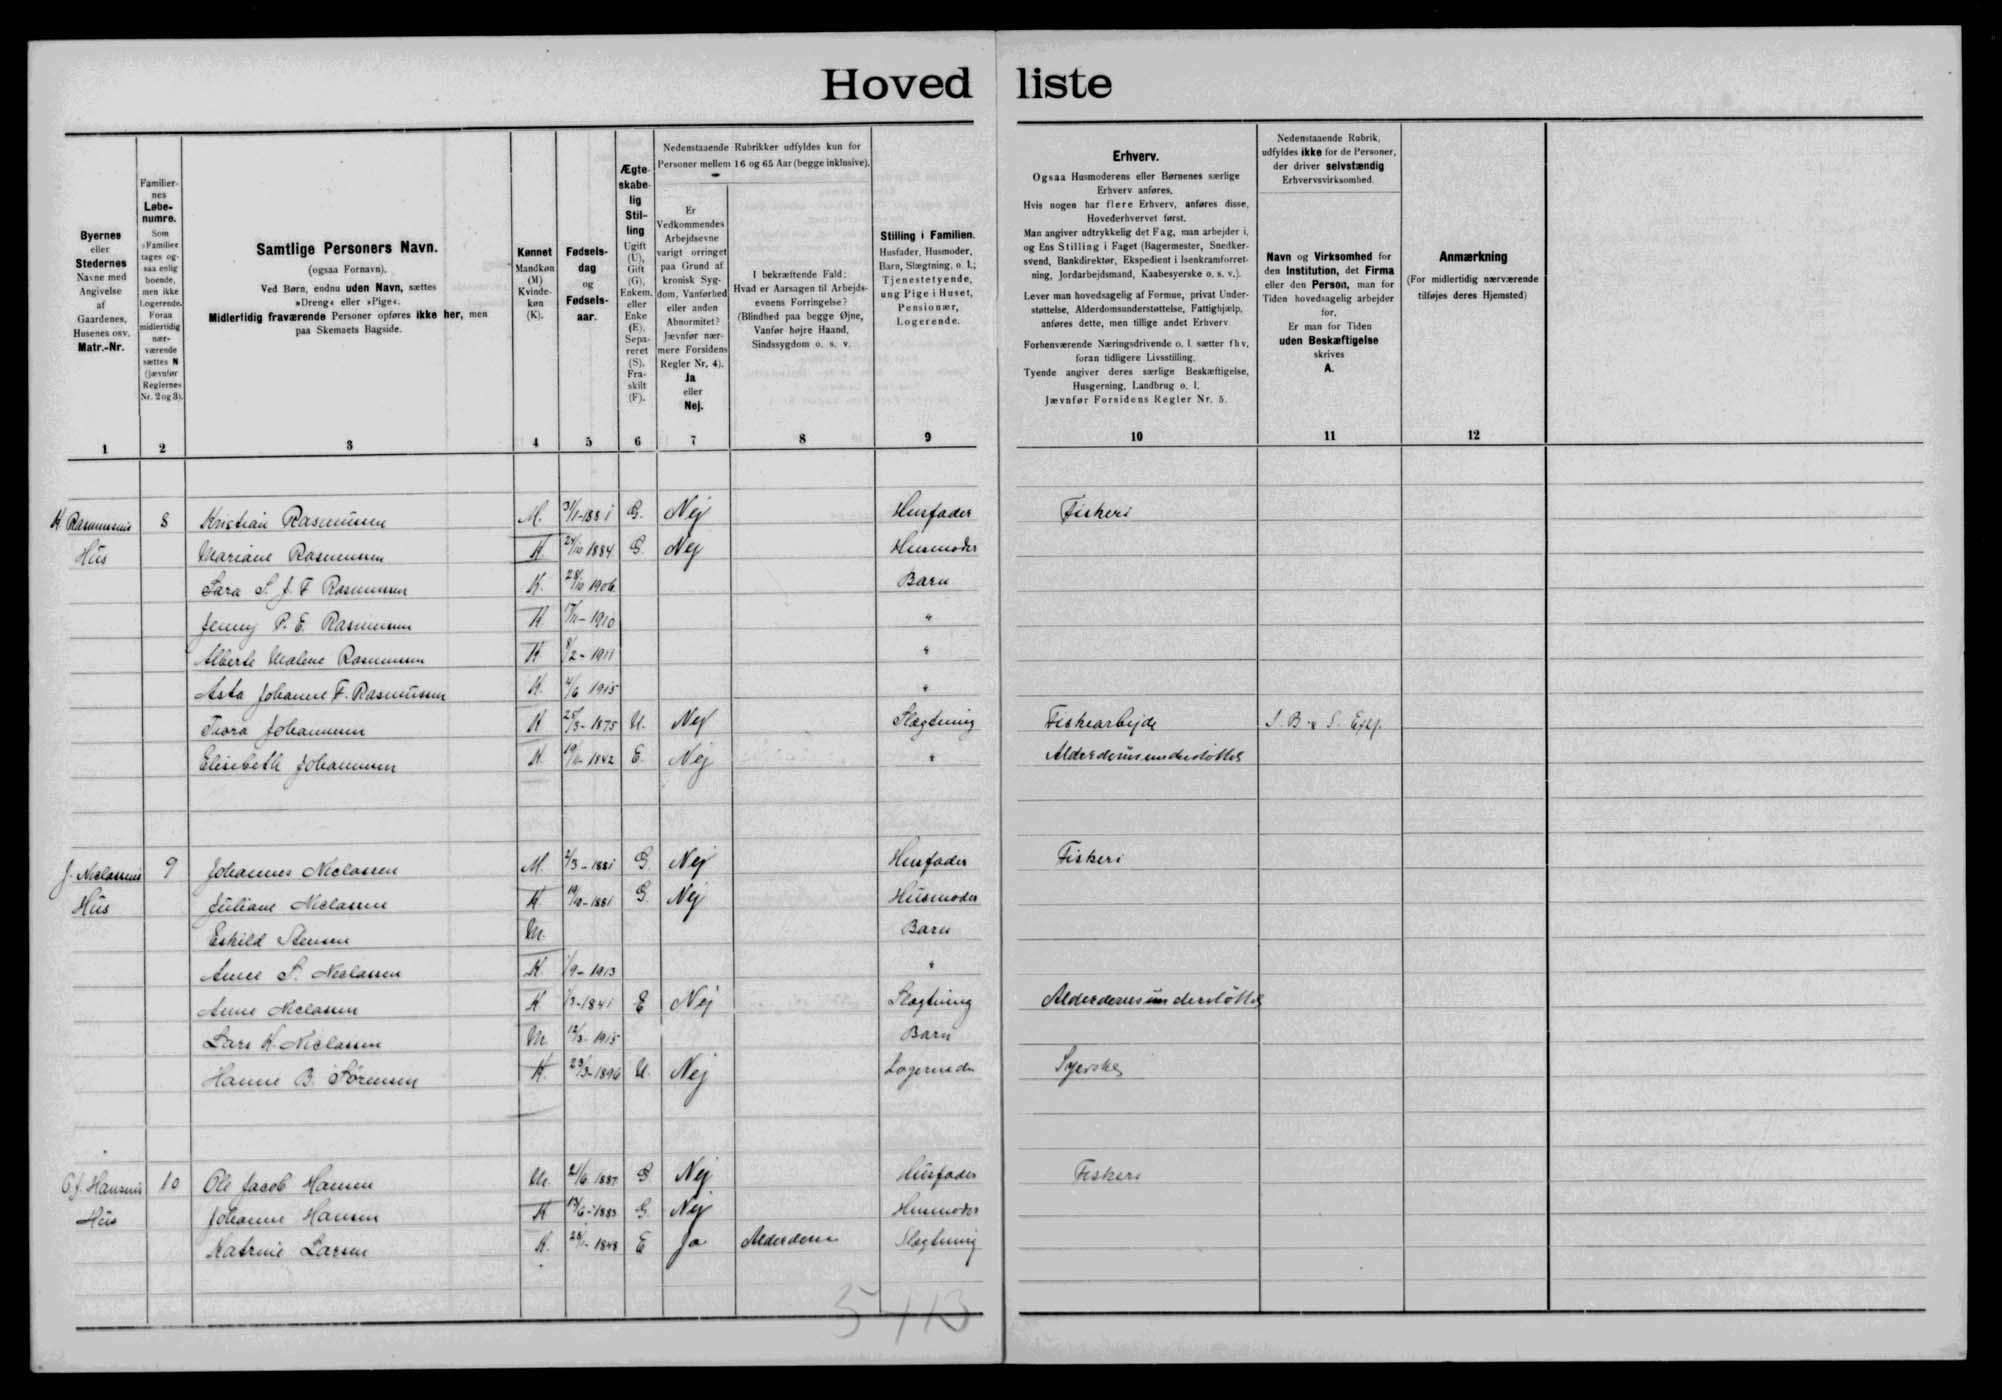 Hovedliste
Byernes
eller
Stedernes
Navne med
Angivelse
af
Gaardenes,
Husenes osv.
Matr.-Nr.
1
Familier-
nes
Løbe-
numre.
Som
»Familie«
tages og-
saa enlig
boende,
men ikke
Logerende.
Foran
midlertidig
nær-
værende
sættes N
(jævnfør
Reglernes
Nr. 2 og 3).
2
Samtlige Personers Navn.
(ogsaa Fornavn).
Ved Børn, endnu uden Navn, sættes
»Dreng« eller »Pige«.
Midlertidig fraværende Personer opføres ikke her, men
paa Skemaets Bagside.
3
Kønnet
Mandkøn
(M)
Kvinde-
køn
(K).
4
Fødsels-
dag
og
Fødsels-
aar.
5
Ægte-
skabe-
lig
Stil-
ling
Ugift
(U),
Gift
(G),
Enkem.
eller
Enke
(E),
Sepa-
reret
(S),
Fra-
skilt
(F).
6
Nedenstaaende Rubrikker udfyldes kun for
Personer mellem 16 og 65 Aar (begge inklusive).
Er
Vedkommendes
Arbejdsevne
varigt orringet
paa Grund af
kronisk Syg-
dom, Vanførhed
eller anden
Abnormitet?
Jævnfør nær-
mere Forsidens
Regler Nr. 4).
Ja
eller
Nej.
7
I bekræftende Fald:
Hvad er Aarsagen til Arbejds-
evnens Forringelse?
(Blindhed paa begge Øjne,
Vanfør højre Haand,
Sindssygdom o. s. v.
8
Stilling i Familien.
Husfader, Husmoder,
Barn, Slægtning, o. l.;
Tjenestetyende,
ung Pige i Huset,
Pensionær,
Logerende.
9
Erhverv.
Ogsaa Husmoderens eller Børnenes særlige
Erhverv anføres.
Hvis nogen har flere Erhverv, anføres disse,
Hovederhvervet først.
Man angiver udtrykkelig det Fag, man arbejder i,
og Ens Stilling i Faget (Bagermester, Snedker-
svend, Bankdirektør, Ekspedient i Isenkramforret-
ning, Jordarbejdsmand, Kaabesyerske o. s. v.).
Lever man hovedsagelig af Formue, privat Under-
støttelse, Alderdomsunderstøttelse, Fattighjælp,
anføres dette, men tillige andet Erhverv
Forhenværende Næringsdrivende o. l. sætter fhv.
foran tidligere Livsstilling.
Tyende angiver deres særlige Beskæftigelse,
Husgerning, Landbrug o. l.
Jævnfør Forsidens Regler Nr. 5.
10
Nedenstaaende Rubrik,
udfyldes ikke for de Personer,
der driver selvstændig
Erhvervsvirksomhed.
Navn og Virksomhed for
den Institution, det Firma
eller den Person, man for
Tiden hovedsagelig arbejder
for.
Er man for Tiden
uden Beskæftigelse
skrives
A.
11
Anmærkning
(For midlertidig nærværende
tilføjes deres Hjemsted)
12
K Rasmussens 8 Kristian Rasmussen M. 3/1-1881 G. Nej Husfader Fiskeri
Hus Mariane Rasmussen K 24/10 1884 G. Nej Husmoder
Sara S. J. F Rasmussen K. 28/10 1906 Barn
Jenny P. E. Rasmussen K. 17/11-1910 "
Alberte Malene Rasmussen K. 8/2-1911 "
Asta Johanne F. Rasmussen K. 4/6 1915 "
Thora Johannesen K 25/5-1875 U. Nej Slægtning Fiskearbejde
Elisebeth Johannesen K. 1842 E. Nej "
J. Niclassens 9 Johannes Niclassen M. 2/3-1881 G. Nej Husfader Fiskeri
Hus Juliane Niclassen K 19/10-1881 G. Nej Husmoder
Eskild Stensen M. Barn
Anne S. Niclassen K. 1/9-1913 "
Anne Niclassen K 1841 E Nej Slægtning
Lars K. Niclassen M. 1915 Barn
Hanne B. Sørensen K. 29/3-1896 U. Nej Logerende Syerske
O J. Hansens 10 Ole Jacob Hansen M. 21/6 1887 G Nej Husfader Fiskeri
Hus Johanne Hansen K 13/6-1883 G. Nej Husmoder
Katrine Larsen K. 28/1-1848 E Ja Alderdom Slægtning
5